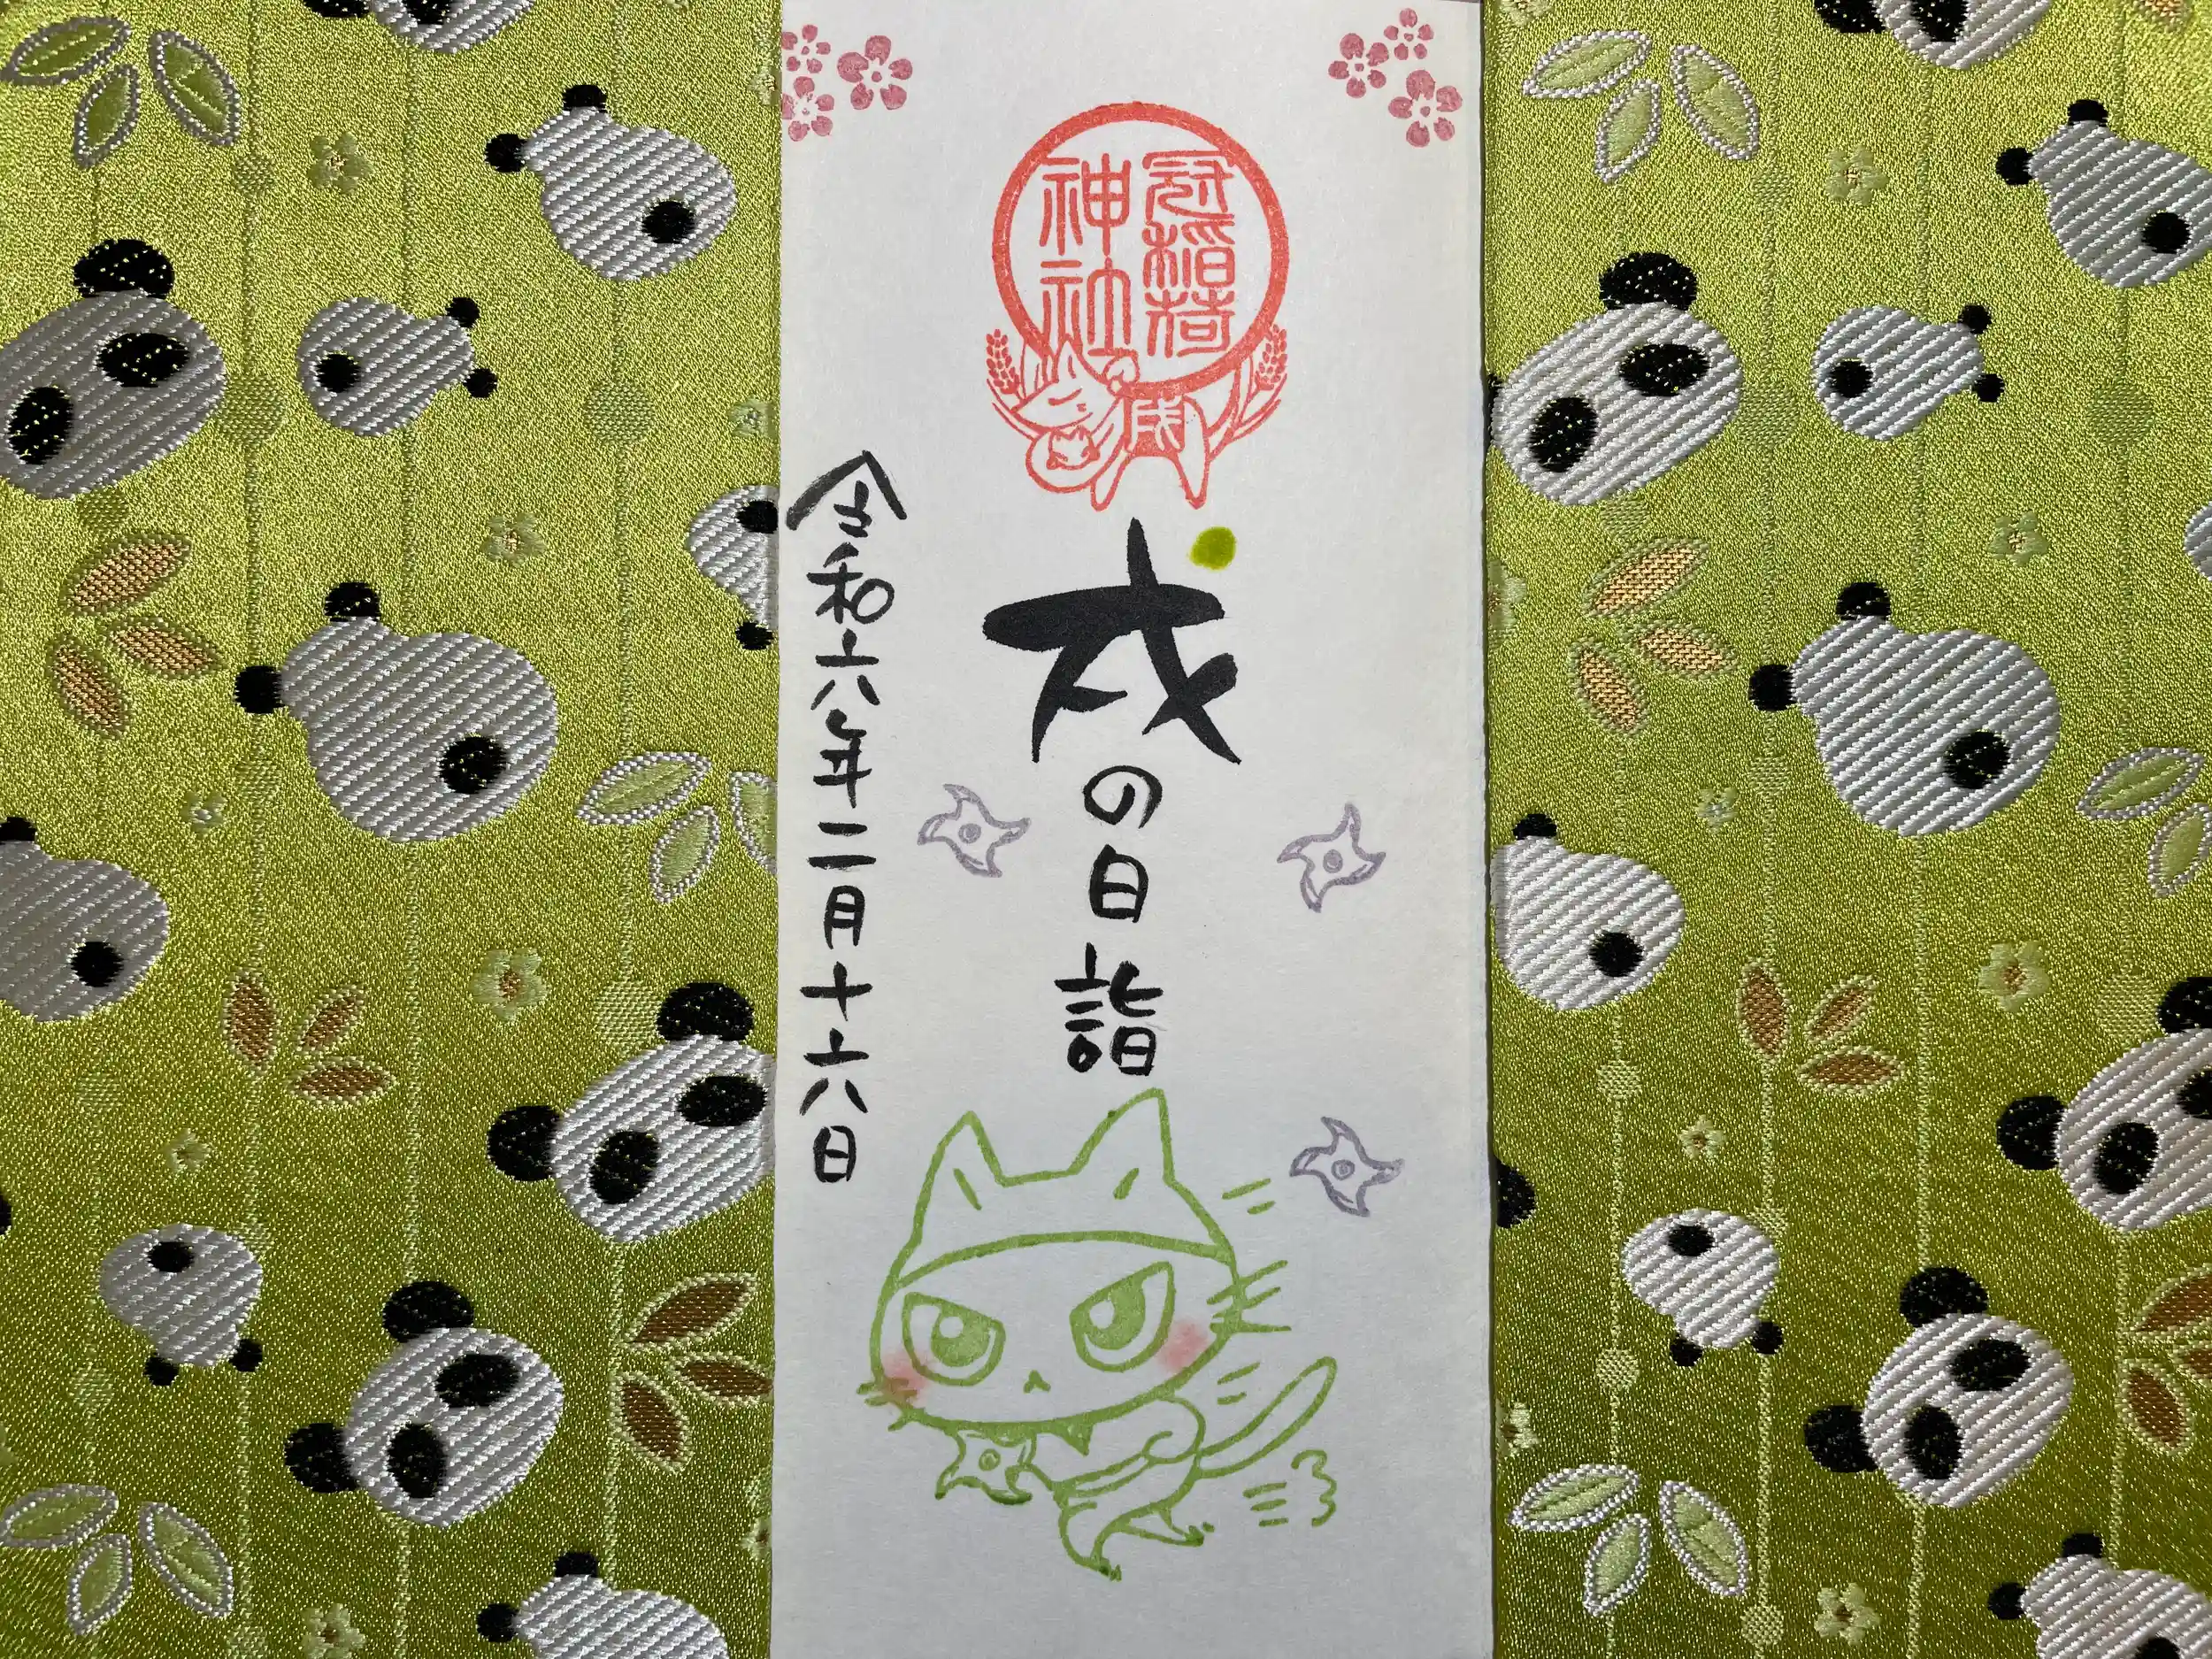 冠稲荷
神社
戌
戌の日詣
令和六年二月十六日